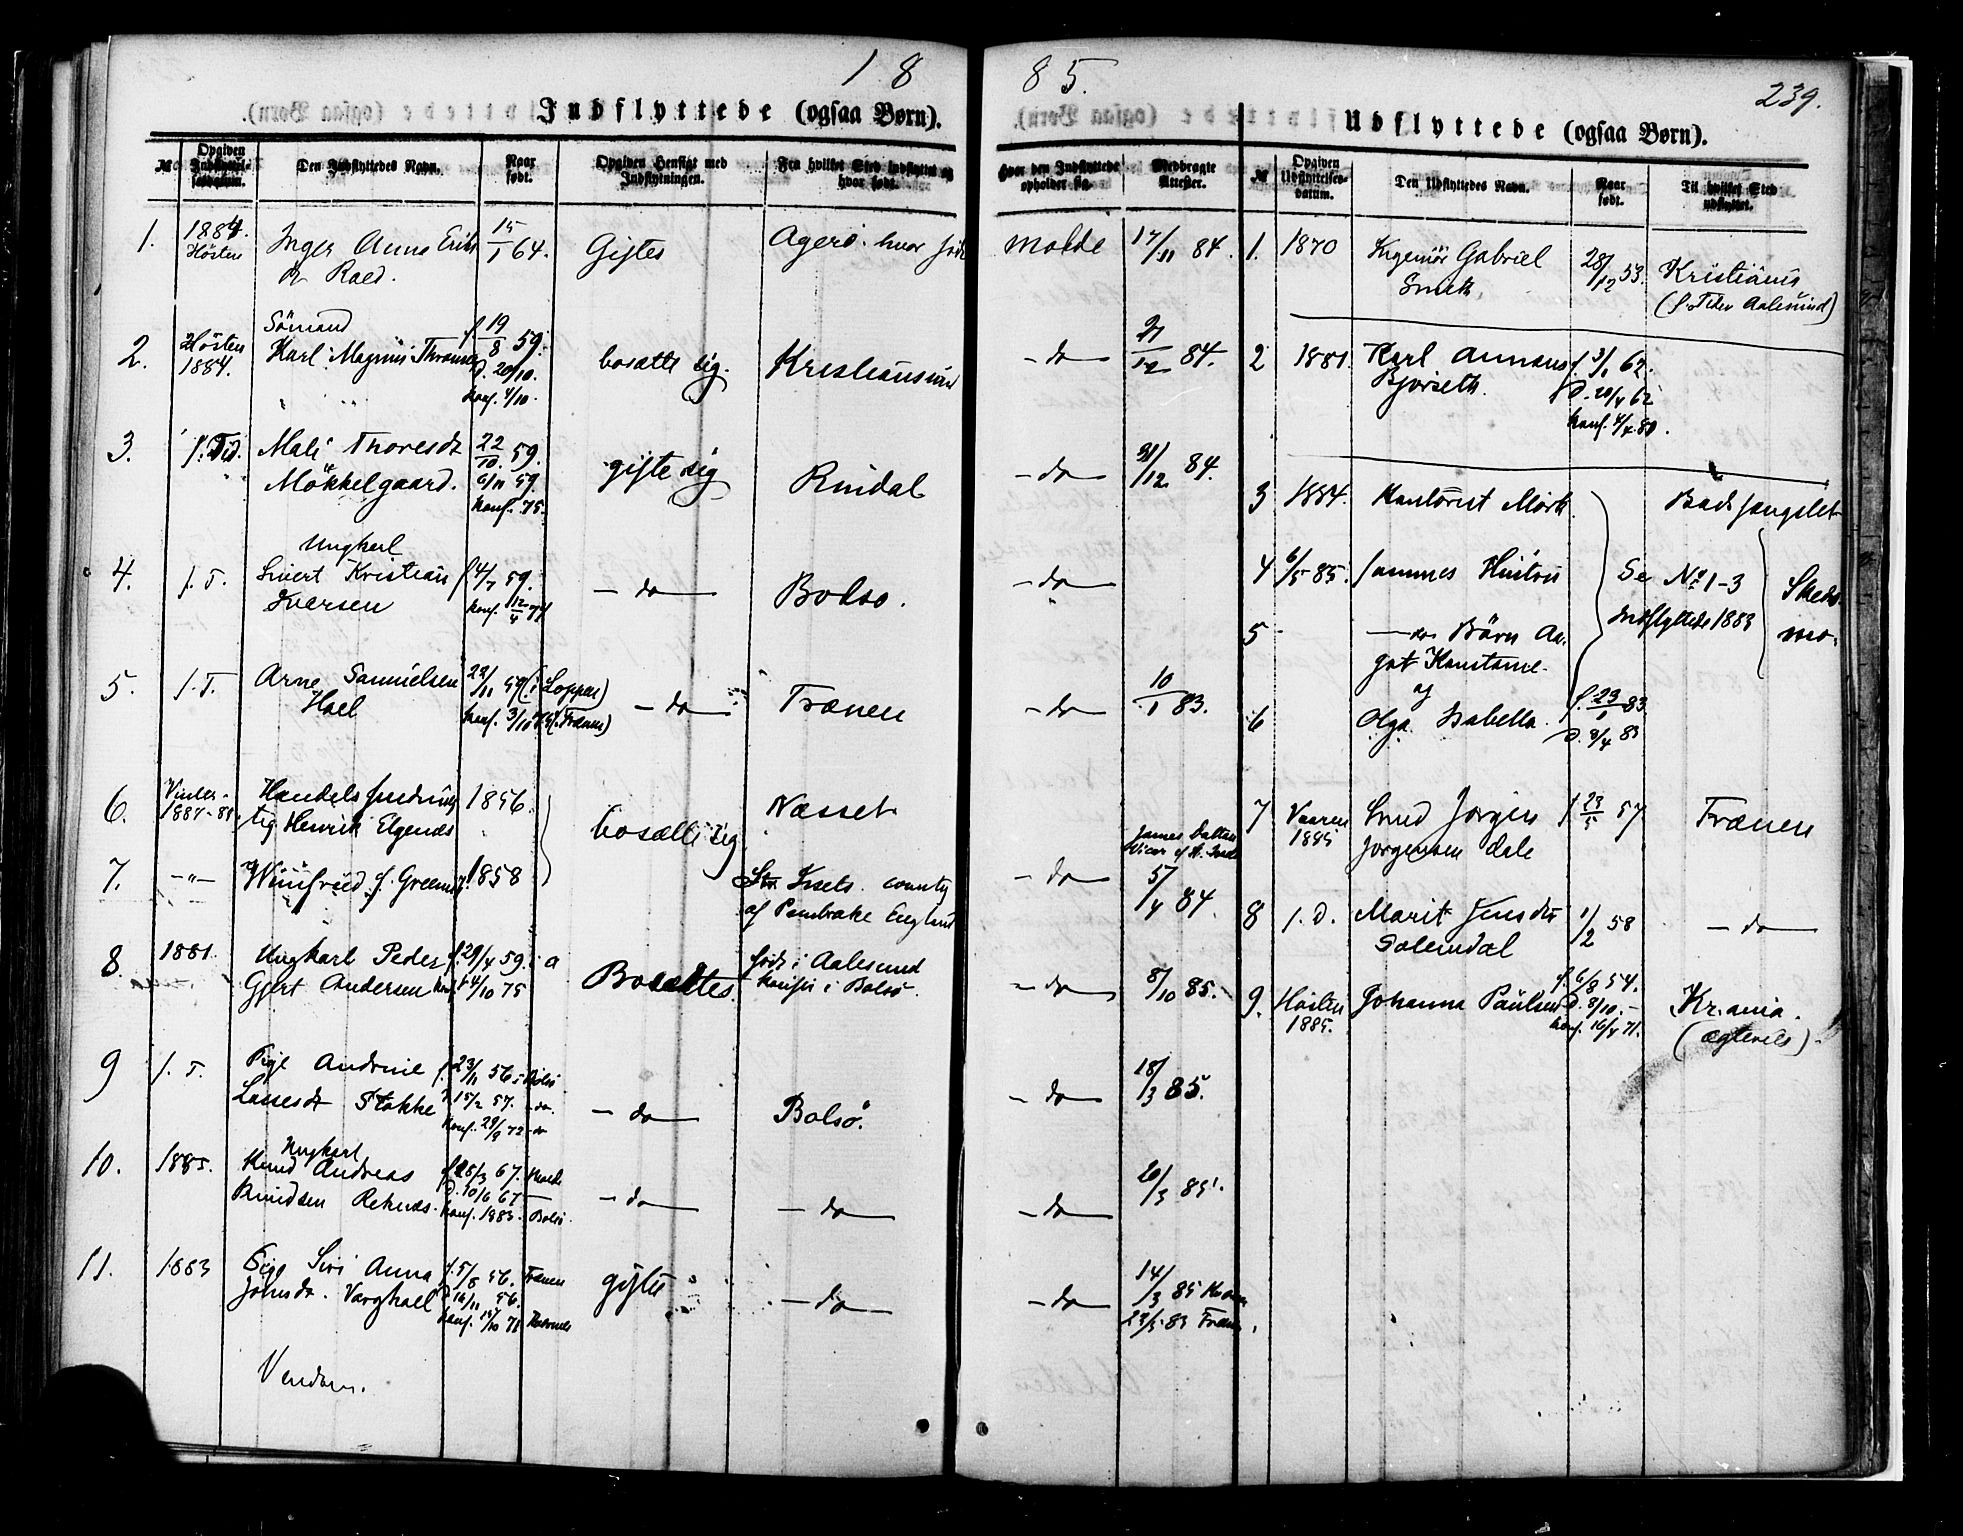 1 8 8 5.
239.
Indflyttede (ogsaa Børn).
№ Opgiven Indflyttelsesdatum. Den Indflyttedes Navn. Naar født. Opgiven Hensigt med Indflytningen. Fra hvilket Sted indflyttet og hvor født. Hvor den Indflyttede opholder sig. Medbragte Attester.
1. 1884. Høsten Inger Anna 15/1 64. Giftes Agerø. hvor Molde 17/11 84.
Roed.
2. Høsten 1884. Sømand f 19/8 59. bosætte sig. Kristiansund - do - 21/12 84.
Karl Magnus d. 20/10.
konf. 4/10.
3. f. Tid. Mali Thoresdt 22/10 59. gifte sig Rindal - do - 31/12 84.
Mökkelgaard. 6/11 59.
konf. 75.
4. f. T. Ungkarl
Sivert Kristian f 4/7 59. - do - Bolsø. - do -
Iversen konf. 12/4 74
5. f. T. Arne Samuelsen 22/11 59 (i Loppen) - do - Frænen - do - 10/1 83.
Hoel konf. 3/10 (i Frænen)
6. Vinter 1884-85 Handelsfuldmæg 1856. bosætte sig Næsset
tig Henrik Elgenæs
7. -"- Winifred f. 1858 - do - 5/4 84.
James Dalton
Vicar of
county
of Pembroke England
8. 1881. Ungkarl Peder f. 29/4 59. Bosættes. født i Aalesund - do - 8/10 85.
Gjert Andersen konf 4/10 75 konfir i Bolsø.
9 f. T. Pige Andrine f. 23/11 56 i Bolsø - do - Bolsø. - do - 18/3 85.
Lassesdt Stokke d 15/2 57. - do
konf. 29/9 72 - do
10. 1885. Ungkarl
Knud Andreas f 28/3 67. Molde - do - - do - - do - 20/3 85.
Knudsen Reknæs. d. 10/6 67 -
konf. 1883. - Bolsø.
11. 1883 Pige Siri Anna f. 5/8 56. Frænen gifte - do - - do - 14/3 85
Johnsdr. Varghoel d 16/11 56. 23/5 83 Fræn
konf. 15/10 71
Vendom.
Udflyttede (ogsaa Børn).
№ Opgiven Udflyttelsesdatum. Den Udflyttedes Navn. Naar født. Til hvilket Sted udflyttet.
1. 1870 Ingeniør Gabriel 28/12 53. Kristiania
Smith (f. Tiden Aalesund)
2 1881. Karl Annanus f. 3/1 62.
Bjørseth. d. 20/4 62
konf. 4/4 80.
3 1884. Kontorist Mørk. Bads fængslet
4 6/5 85. Sammes Hustru Se № 1-3
Indflyttede 1883 Skeds-
mo.
5 - ds Børn Aa-
got Konstanse.
og
6 Olga Isabella. f. 23/1 83
d. 8/4 83
7 Vaaren 1885 Knud Jørgen f 23/5 57 Frænen
Jørgensen Dale
8 f. D. Marit Jensdtr 1/2 58 - do -
Solemdal
9. Høsten 1885. Johanna Paulsen f. 6/8 54. Kr.ania.
d. 8/10. - (ægtevies).
konf. 16/4 71.